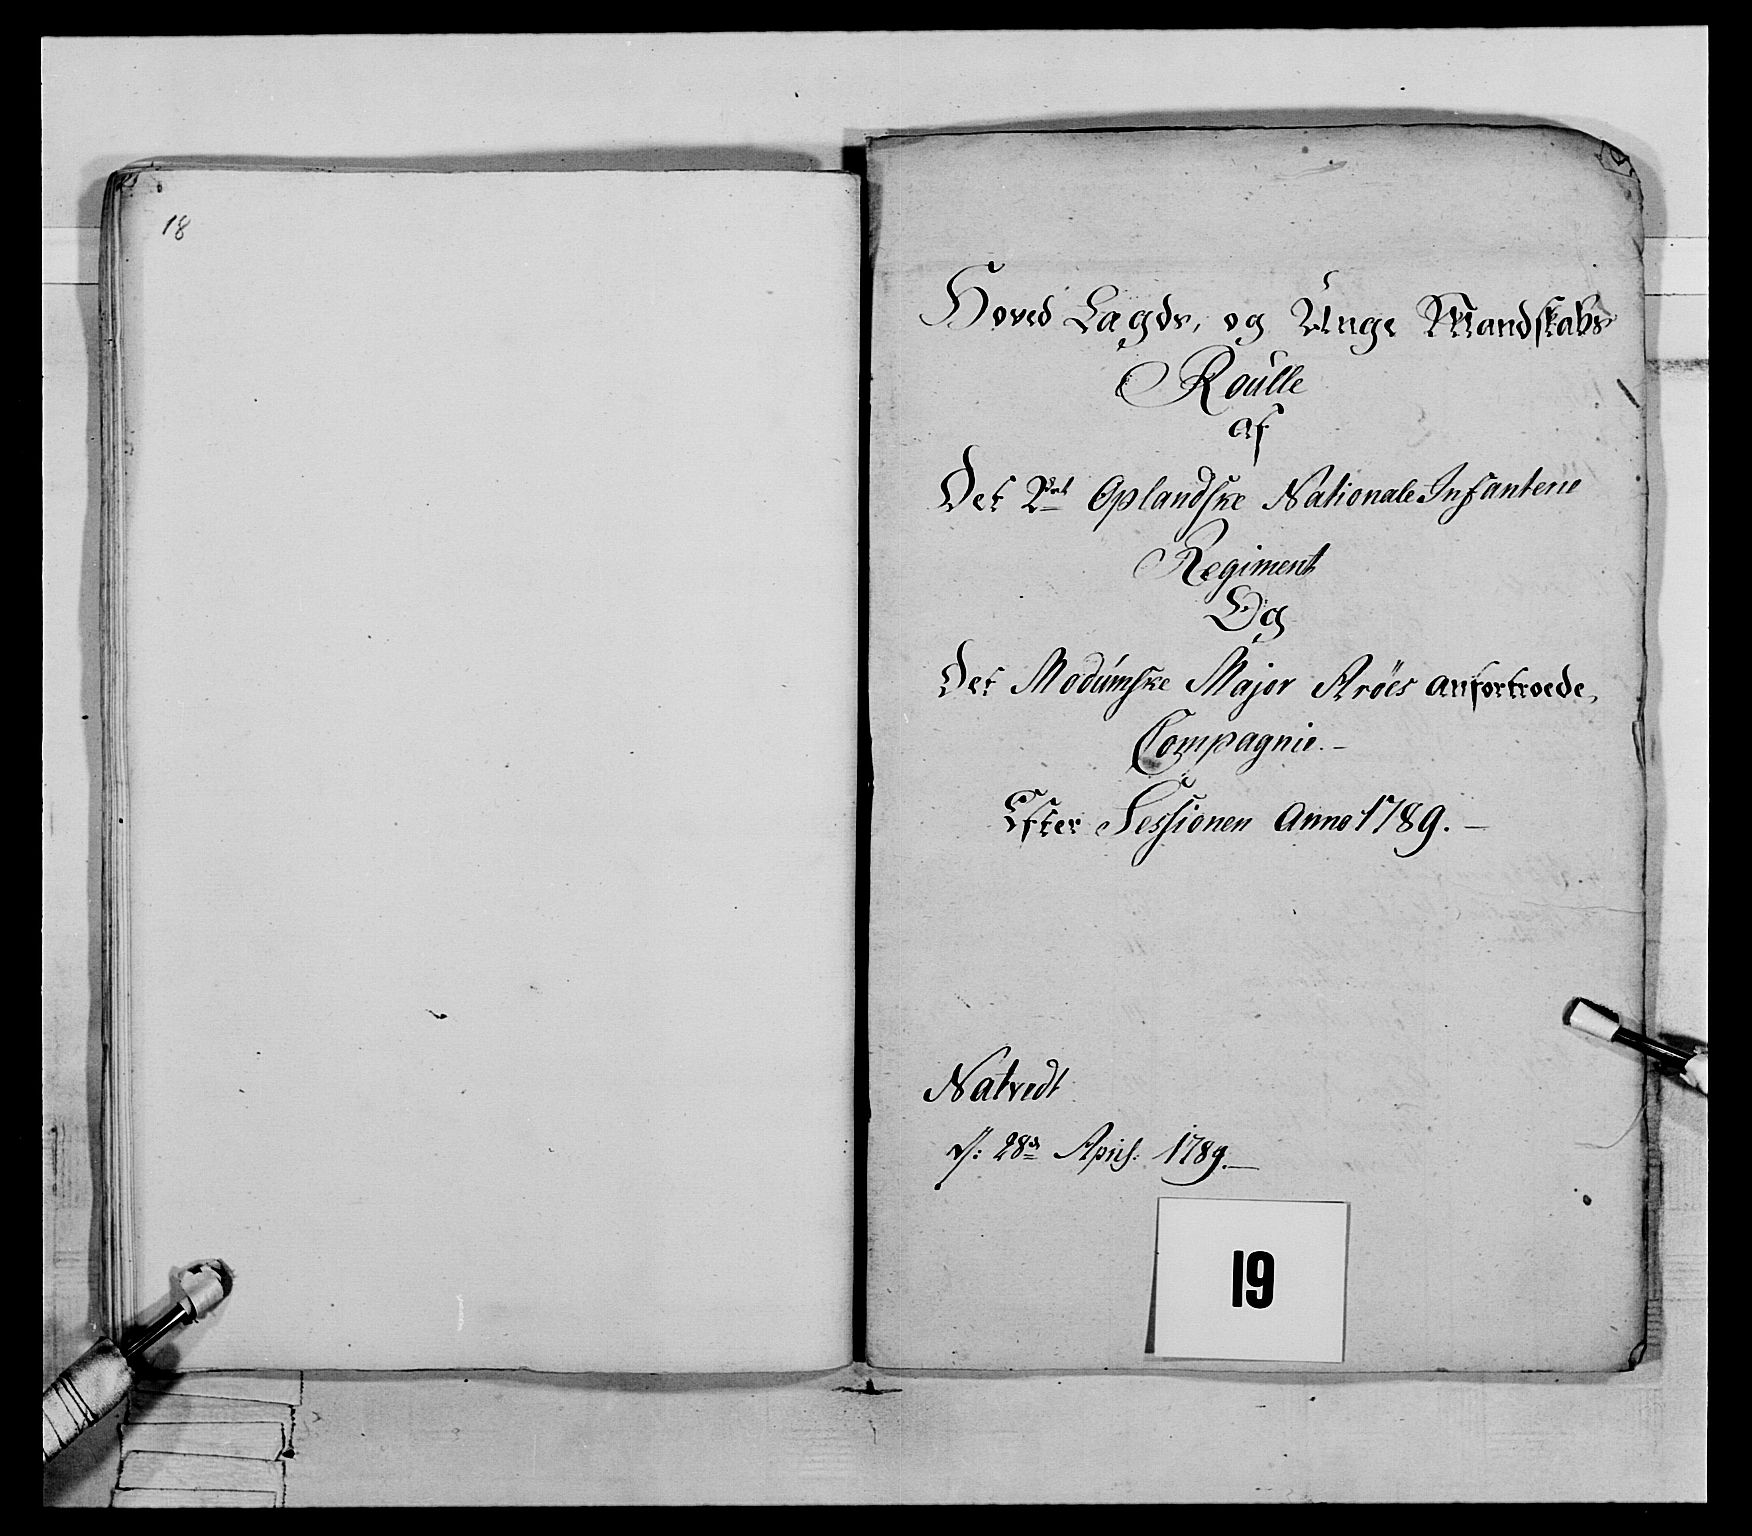 18
Hoved Lægds, og Unge Mandskabs
Roulle
af
Det 2det Oplandske Nationale Infanterie
Regiment
Og
Det Modumske Major Aröes anfortroede,
Compagnie. -
Efter Sessionen Anno 1789. -
Natvedt
d: 28de April: 1789. -
19